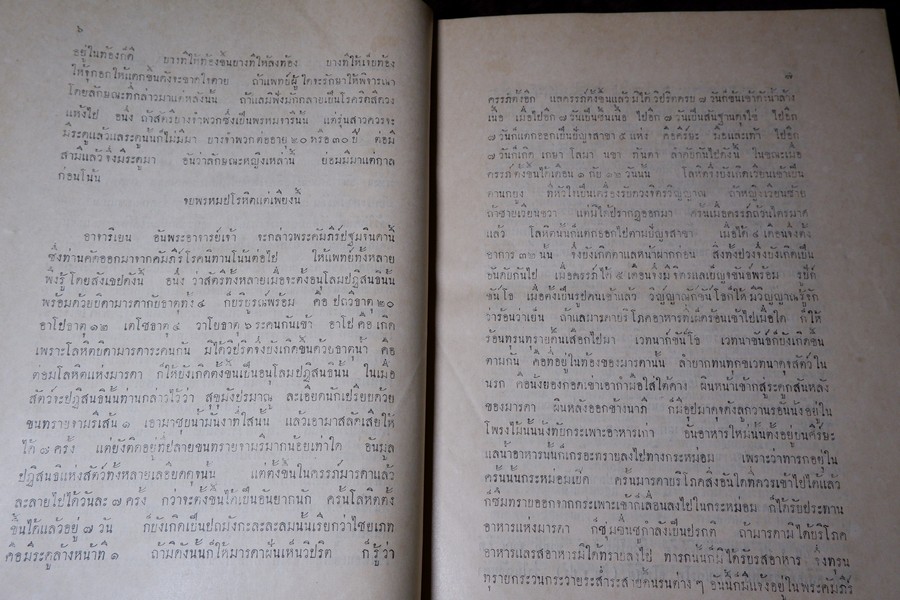 ๖
อยู่ในท้องก็ดี ยางทีให้ท้องขึ้นยางทีให้ลงท้อง ยางทีให้เจ็บท้อง
ให้จุกอกให้แดกขึ้นดังจะขาดใจตาย ถ้าแพทย์ผู้ใดจะรักษาให้พิจารณา
โดยลักษณะที่กล่าวมาแต่หลังนั้น ถ้าแลมิฟังมักกลายเป็นโรคริดสีดวง
แห้งไป อนึ่ง ถ้าสัตรียางจำพวกซึ่งเป็นพรหมจารีนั้น แต่รุ่นสาวควรจะ
มีระดูแล้วและระดูนั้นก็ไม่มีมา ยางจำพวกต่ออายุ ๒๐ หรือ ๓๐ ปี ต่อมี
สามีแล้วจึงมีระดูมา อันว่าลักษณะหญิงเหล่านี้ ย่อมมีมาแต่กาล
ก่อนโน้น
จบพรหมปุโรหิตแต่เพียงนี้
อาจาริเยน อันพระอาจารย์เจ้า จะกล่าวพระคัมภีร์ปฐมจินดานี้
ซึ่งท่านคัดออกมาจากคัมภีร์โรคนิทานโน้นต่อไป ให้แพทย์ทั้งหลาย
พึงรู้โดยสังเขปดังนี้ อนึ่ง ว่าสัตรีทั้งหลายเมื่อจะตั้งอนุโลมปฏิสนธินั้น
พร้อมด้วยบิดามารดากับธาตุทั้ง ๔ ก็บริบูรณ์พร้อม คือ ปถวีธาตุ ๒๐
อาโปธาตุ ๑๒ เตโชธาตุ ๔ วาโยธาตุ ๖ ระคนกันเข้า อาโป คือ เกิด
เพราะโลหิตบิดามารดาระคนกัน มิได้วิปริตจึงบังเกิดขึ้นด้วยธาตุน้ำ คือ
ต่อมโลหิตแห่งมารดา ก็ให้บังเกิดตั้งขึ้นเป็นอนุโลมปฏิสนธินั้น ในเมื่อ
สัตว์จะปฏิสนธินั้นท่านกล่าวไว้ว่า สุขุมังปรมาณู ละเอียดนักเปรียบด้วย
ขนทรายจามรีเส้น ๑ เอามาชุบน้ำมันงาที่ใสนั้น แล้วเอามาสลัดเสียให้
ได้ ๗ ครั้ง แต่ยังติดอยู่ที่ปลายขนทรายจามรีมากน้อยเท่าใด อันมูล
ปฏิสนธิแห่งสัตว์ทั้งหลายละเอียดดุจนั้น แต่ตั้งขึ้นในครรภ์มารดาแล้ว
ละลายไปได้วันละ ๗ ครั้ง กว่าจะตั้งขึ้นได้เป็นอันยากนัก ครั้นโลหิตตั้ง
ขึ้นได้แล้วอยู่ ๗ วัน ก็บังเกิดเป็นปถมังกะละละสมนั้นเรียกว่าไชยเภท
คือมีระดูล้างหน้าที่ ๑ ถ้ามิดังนั้นก็ได้มารดาฝันเห็นวิปริต ก็รู้ว่า
๗
ครรภ์ตั้งอีก แลครรภ์ตั้งขึ้นแล้วมิได้วิปริตครบ ๗ วันก็ข้นเข้าดังน้ำล้าง
เนื้อ เมื่อไปอีก ๗ วันเป็นชิ้นเนื้อ ไปอีก ๗ วันเป็นสัณฐานดังไข่ ไปอีก
๗ วันก็แตกออกเป็นปัญจสาขา ๕ แห่ง คือศีร์ษะ มือและเท้า ไปอีก
๗ วันก็เกิด เกษา โลมา นขา ทันตา ลำดับกันไปดังนี้ ในขณะเมื่อ
ครรภ์ตั้งขึ้นได้เดือน ๑ กับ ๑๒ วันนั้น โลหิตจึงบังเกิดเวียนเข้าเป็น
ตานกยูง ที่หัวใจเป็นเครื่องรับดวงจิตรวิญญาณ ถ้าหญิงเวียนซ้าย
ถ้าชายเวียนขวา แต่มิได้ปรากฏออกมา ครั้นเมื่อครรภ์ถ้วนไตรมาศ
แล้ว โลหิตนั้นก็แตกออกไปตามปัญจสาขา เมื่อได้ ๔ เดือนจึงตั้ง
อาการ ๓๒ นั้น จึงบังเกิดตาแลหน้าผากก่อน สิ่งทั้งปวงจึงบังเกิดเป็น
อันดับกันไป เมื่อครรภ์ได้ ๕ เดือนจึงมีจิตรแลเบญจขันธ์พร้อม รูปัก
ขันโธ เมื่อตั้งเป็นรูปตนเข้าแล้ว วิญญาณักขันโธก็ให้มีวิญญาณรู้จัก
ว่าร้อนว่าเย็น ถ้าแลมารดาบริโภคอาหารที่เผ็ดร้อนเข้าไปเมื่อใด ก็ให้
ร้อนทุรนทุรายดิ้นเสือกไปมา เวทนากขันโธ เวทนาขันธ์ก็บังเกิดขึ้น
ตามกัน คือที่อยู่ในท้องของมารดานั้น ลำบากทนทุกขเวทนาดุจสัตว์ใน
นรก คือนั่งยองกอดเข่าเอากำมือใส่ใต้คาง ผินหน้าเข้าสู่กระดูกสันหลัง
ของมารดา ผินหลังออกข้างนาภี ก็มีอุปมาดุจดังลูกวานรอันนั่งอยู่ใน
โพรงไม้นั้นนั่งทับกระเพาะอาหารเก่า อันอาหารใหม่นั้นตั้งอยู่บนศีร์ษะ
แลน้ำอาหารนั้นก็เกรอะทรายลงไปทางกระหม่อม เพราะว่าทารกอยู่ใน
ครรภ์นั้นกระหม่อมเปิด ครั้นมารดาบริโภคสิ่งอันใดที่ควรเข้าไปได้แล้ว
ก็ซึมทรายออกจากกระเพาะเข้าก็เลื่อนลงไปในกระหม่อม ก็ได้รับประทาน
อาหารแห่งมารดา ก็ชุ่มชื่นชูกำลังเป็นปรกติ ถ้ามารดามิได้บริโภค
อาหารและรสอาหารมิได้ทรายลงไป ทารกนั้นก็มิได้รับรสอาหาร จึงทุรน
ทุรายกระวนกระวายระส่ำระสายดิ้นรนต่าง ๆ อันนี้ก็มีแจ้งอยู่ในพระคัมภีร์